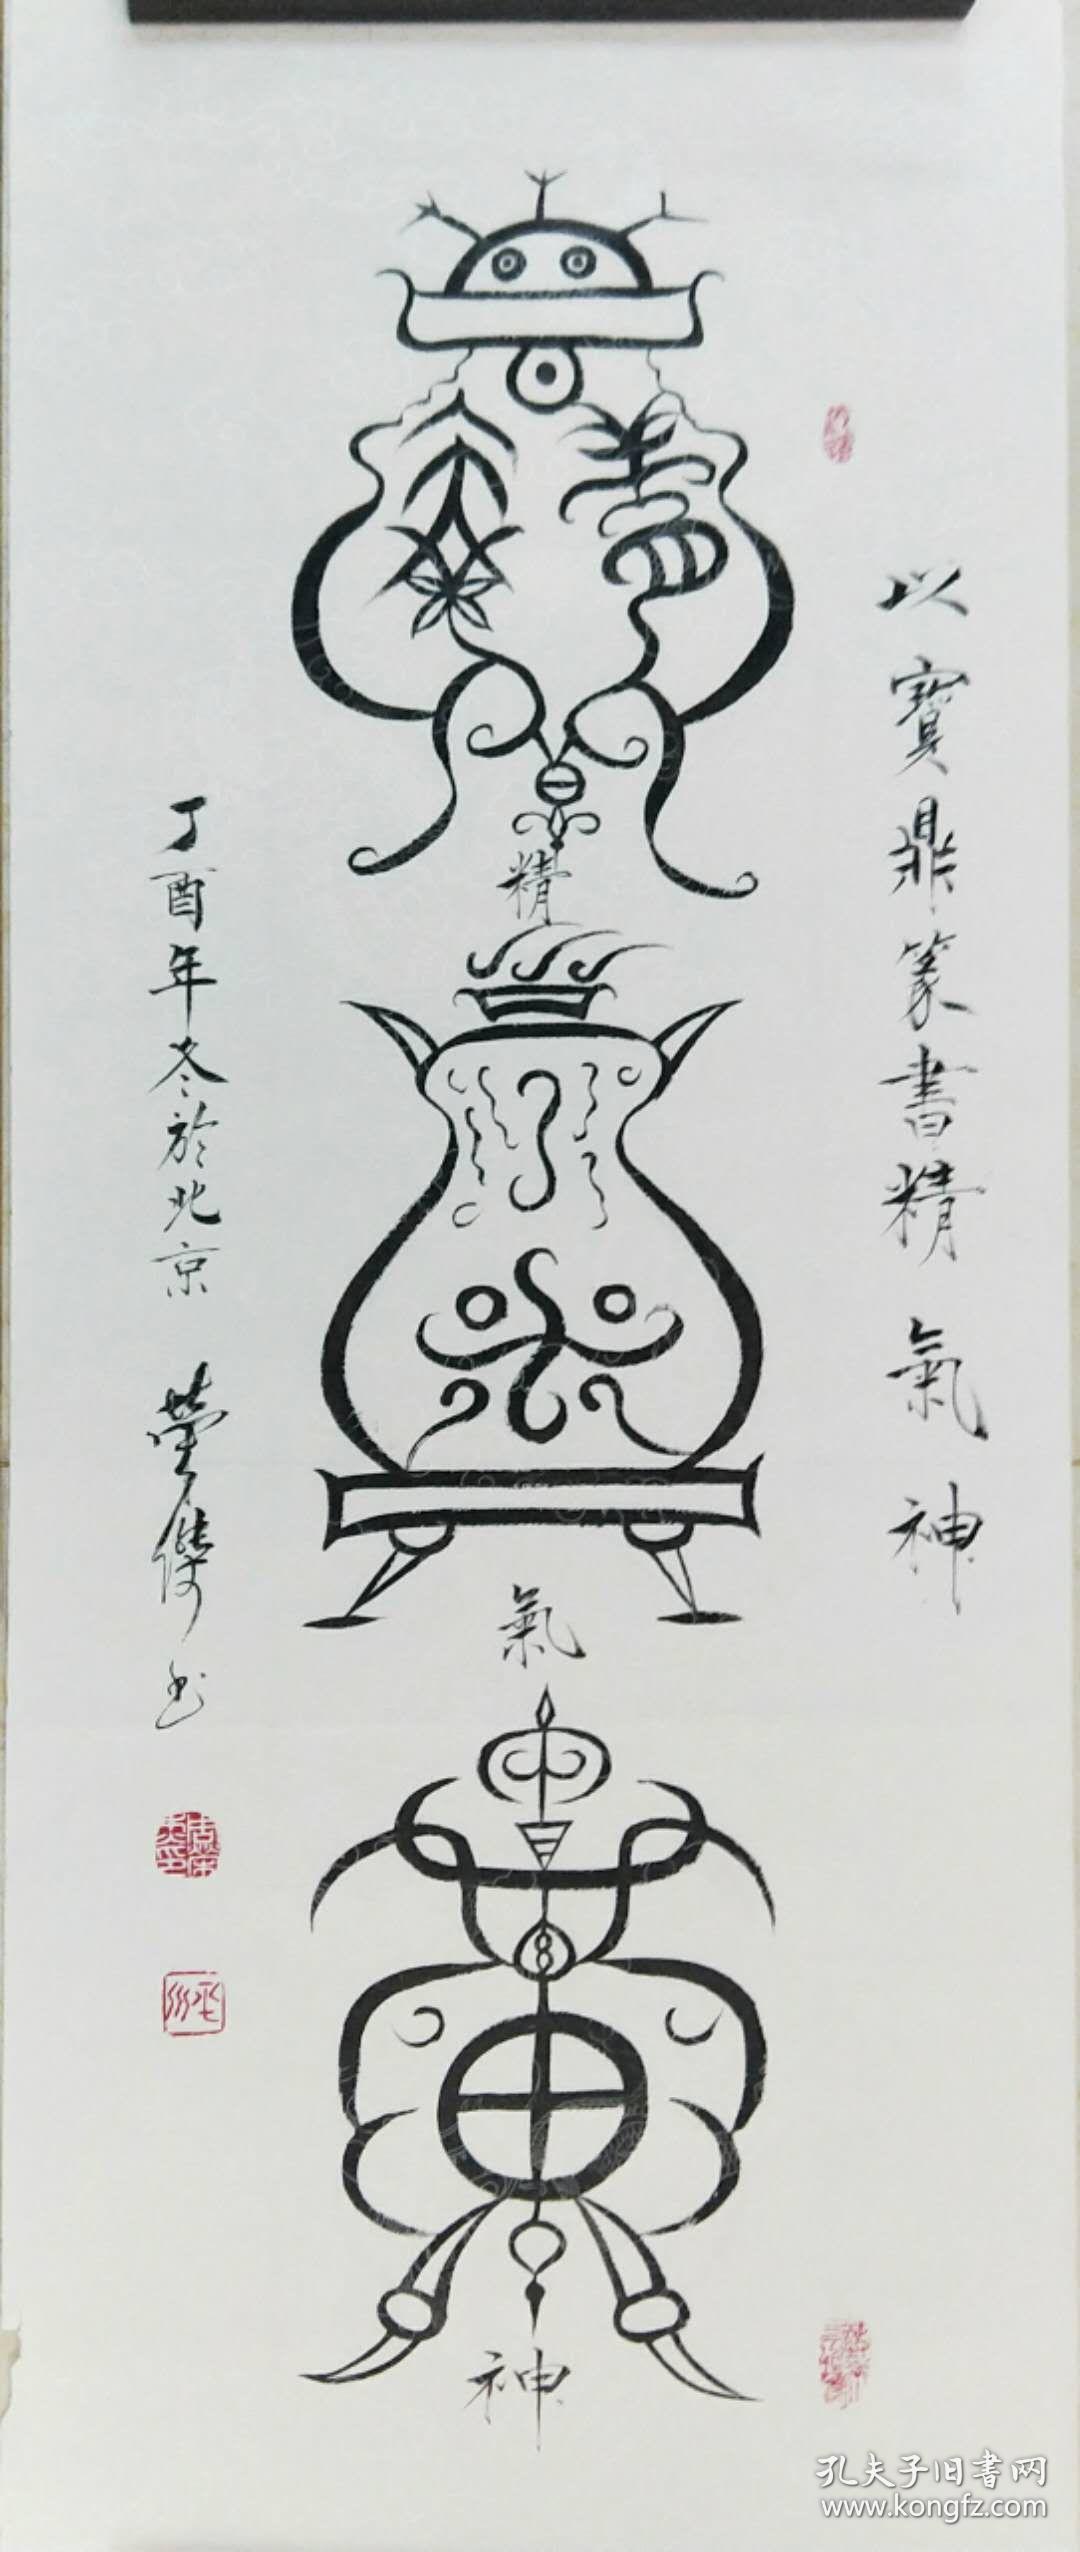 以寶鼎篆書精氣神
精
氣
神
丁酉年冬於北京
孔夫子旧書网
www.kongfz.com